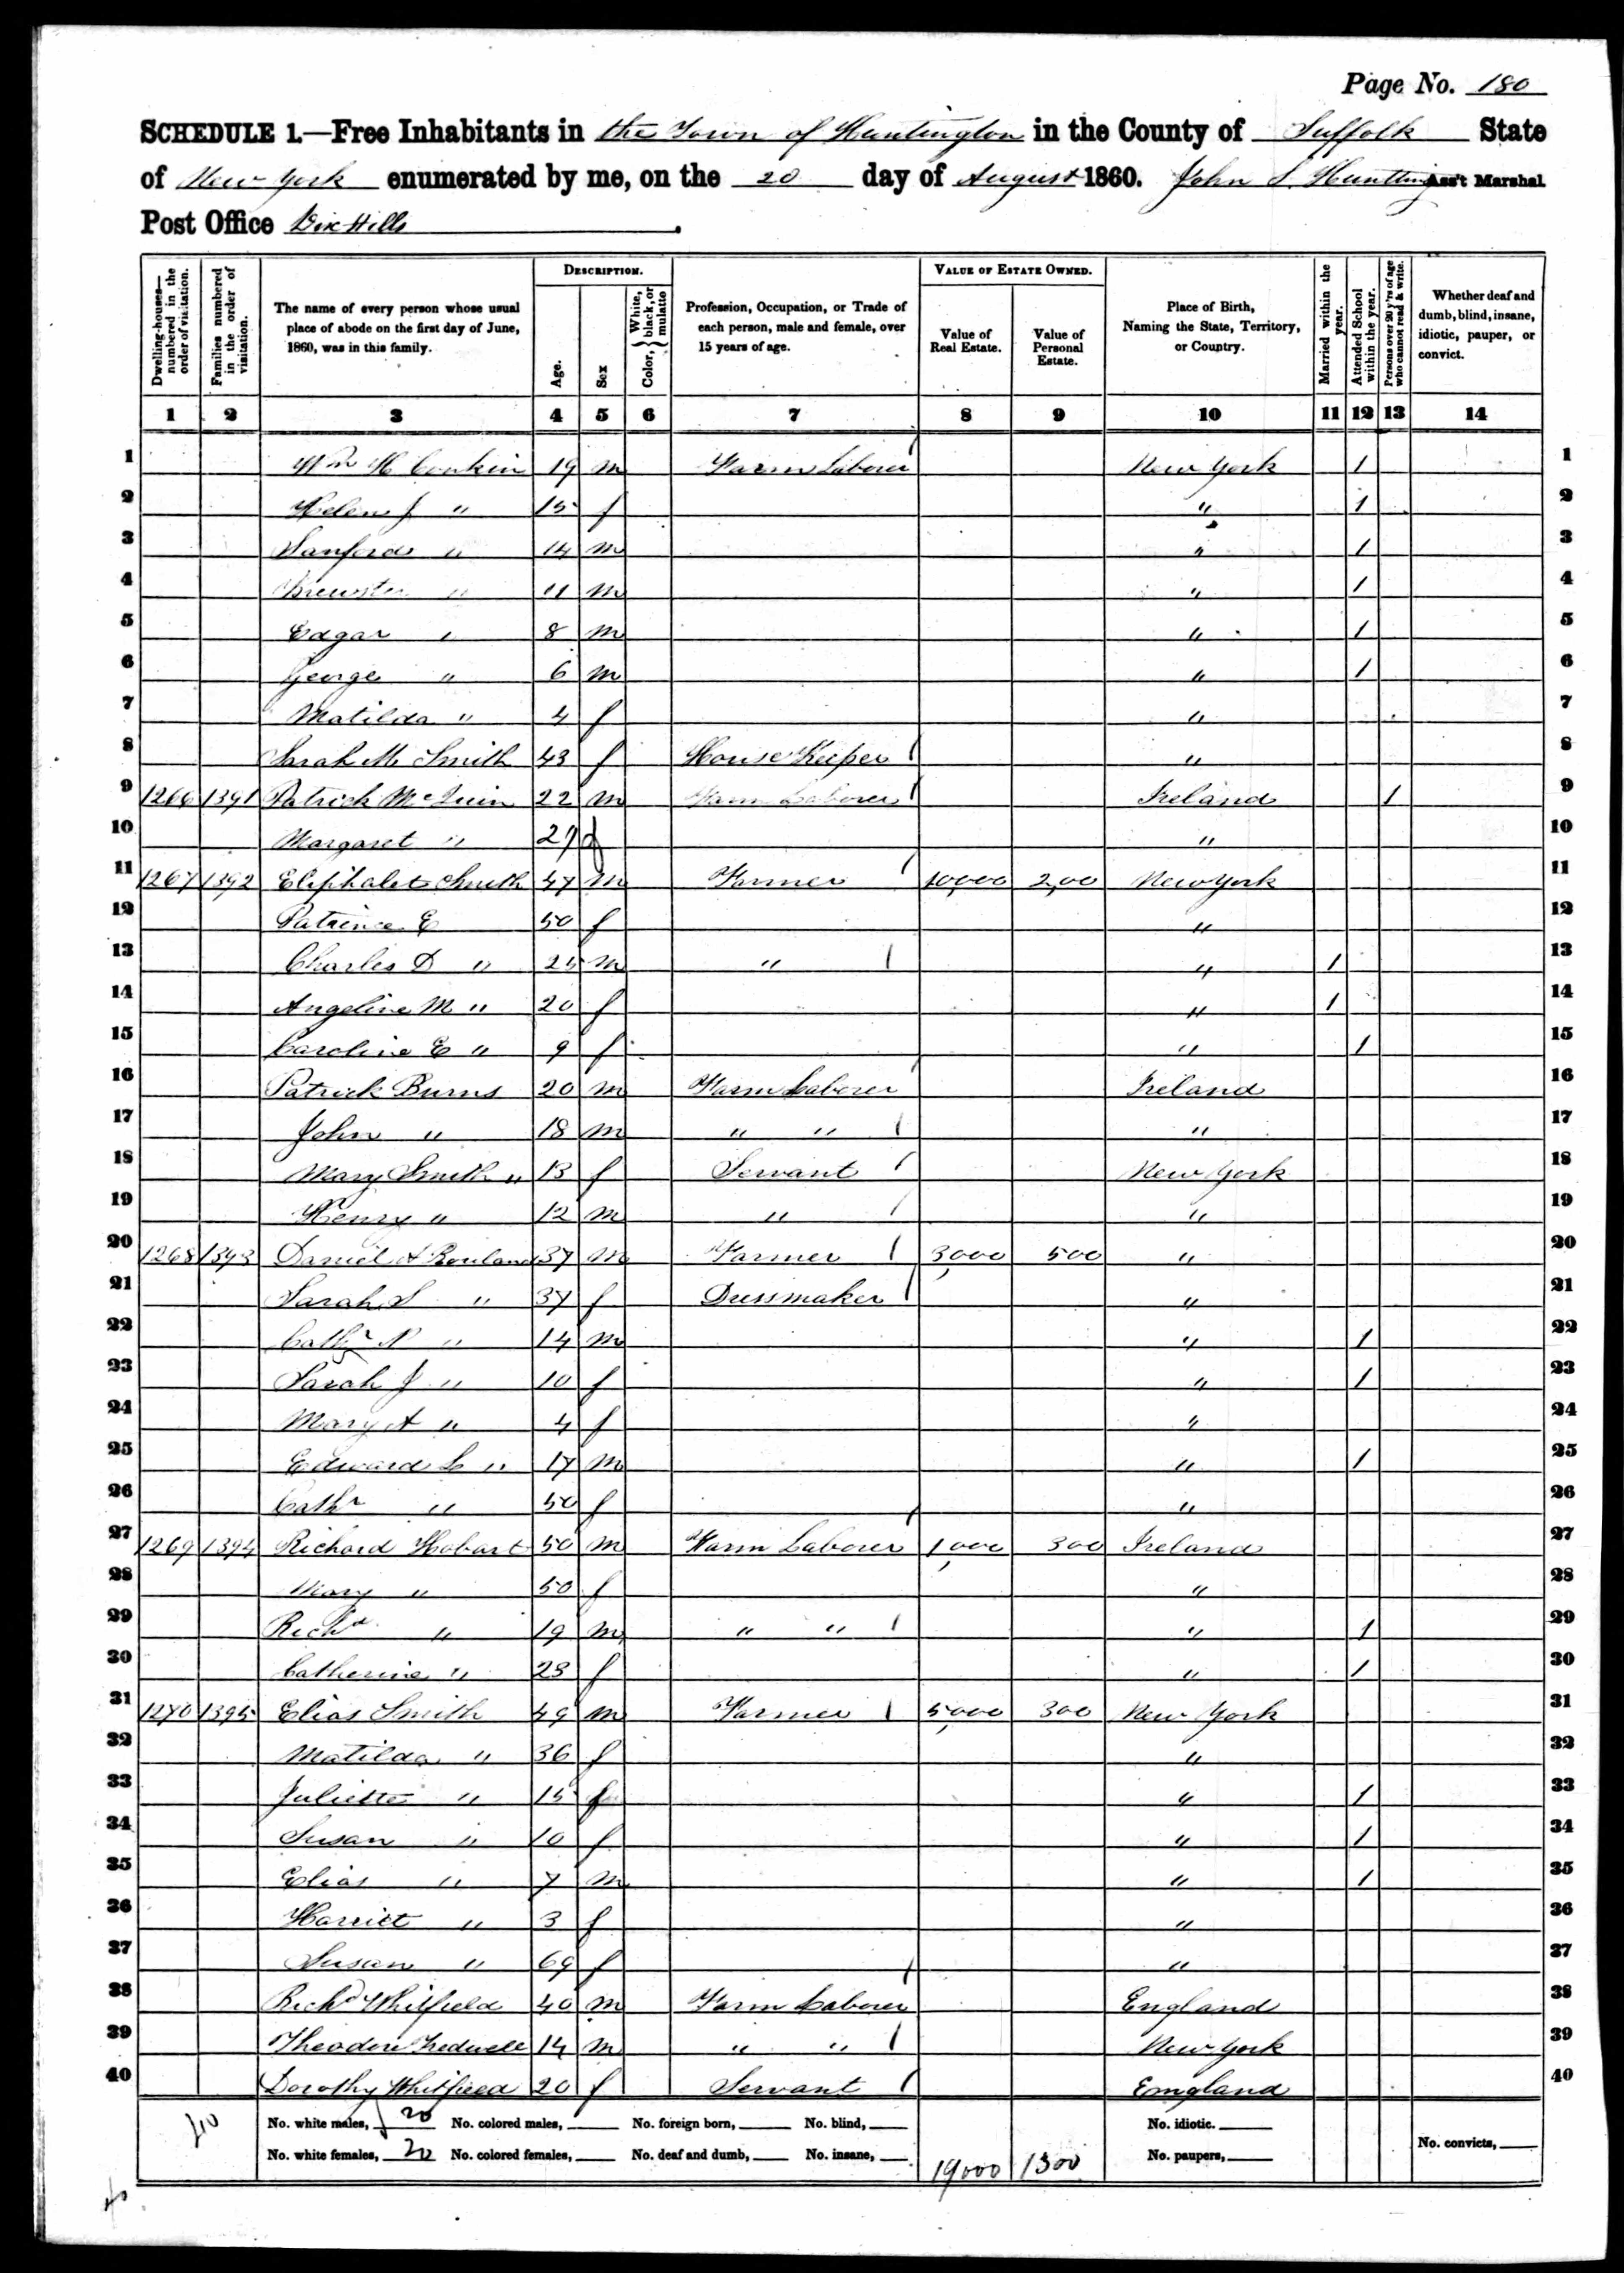 Page No. 180
SCHEDULE 1.—Free Inhabitants in the Town of Huntington in the County of Suffolk State
of New York enumerated by me, on the 20 day of August 1860. John S. Huntting Ass't Marshal
Post Office Dix Hills.
Dwelling-houses—numbered in the order of visitation.
Families numbered in the order of visitation.
The name of every person whose usual place of abode on the first day of June, 1860, was in this family.
DESCRIPTION.
Age.
Sex
Color, { White, black, or mulatto
Profession, Occupation, or Trade of each person, male and female, over 15 years of age.
VALUE OF ESTATE OWNED.
Value of Real Estate.
Value of Personal Estate.
Place of Birth, Naming the State, Territory, or Country.
Married within the year.
Attended School within the year.
Persons over 20 y'rs of age who cannot read & write.
Whether deaf and dumb, blind, insane, idiotic, pauper, or convict.
1 2 3 4 5 6 7 8 9 10 11 12 13 14
1 Wm H Conkin 19 m Farm Laborer New York 1 1
2 Helen J " 15 f " 1 2
3 Sanford " 14 m " 1 3
4 Brewster " 11 m " 1 4
5 Edgar " 8 m " 1 5
6 George " 6 m " 1 6
7 Matilda " 4 f " 7
8 Sarah M Smith 43 f House Keeper " 8
9 1266 1391 Patrick McQuin 22 m Farm Laborer Ireland 1 9
10 Margaret " 27 f " 10
11 1267 1392 Eliphalet Smith 47 m Farmer 10,000 2,00 New York 11
12 Patience E 50 f " 12
13 Charles D " 25 m " " 1 13
14 Angeline M " 20 f " 1 14
15 Caroline E " 9 f " 1 15
16 Patrick Burns 20 m Farm Laborer Ireland 16
17 John " 18 m " " " 17
18 Mary Smith " 13 f Servant New York 18
19 Henry " 12 m " " 19
20 1268 1393 Daniel A Rouland 37 m Farmer 3,000 500 " 20
21 Sarah S " 37 f Dressmaker " 21
22 N " 14 m " 1 22
23 Sarah J " 10 f " 1 23
24 Mary A " 4 f " 24
25 Edward L " 17 m " 1 25
26 Cathr " 50 f " 26
27 1269 1394 Richard Hobart 50 m Farm Laborer 1,000 300 Ireland 27
28 Mary " 50 f " 28
29 Richd " 19 m " " " 1 29
30 Catherine " 23 f " 1 30
31 1270 1395 Elias Smith 49 m Farmer 5,000 300 New York 31
32 Matilda " 36 f " 32
33 Juliette " 15 f " 1 33
34 Susan " 10 f " 1 34
35 Elias " 7 m " 1 35
36 Harriet " 3 f " 36
37 Susan " 69 f " 37
38 Richd Whitfield 40 m Farm Laborer England 38
39 Theodore Tredwell 14 m " " New York 39
40 Dorothy Whitfield 20 f Servant England 40
40 No. white males, 20 No. colored males, No. foreign born, No. blind, No. idiotic.
No. white females, 20 No. colored females, No. deaf and dumb, No. insane, 19000 1300 No. paupers, No. convicts,
40